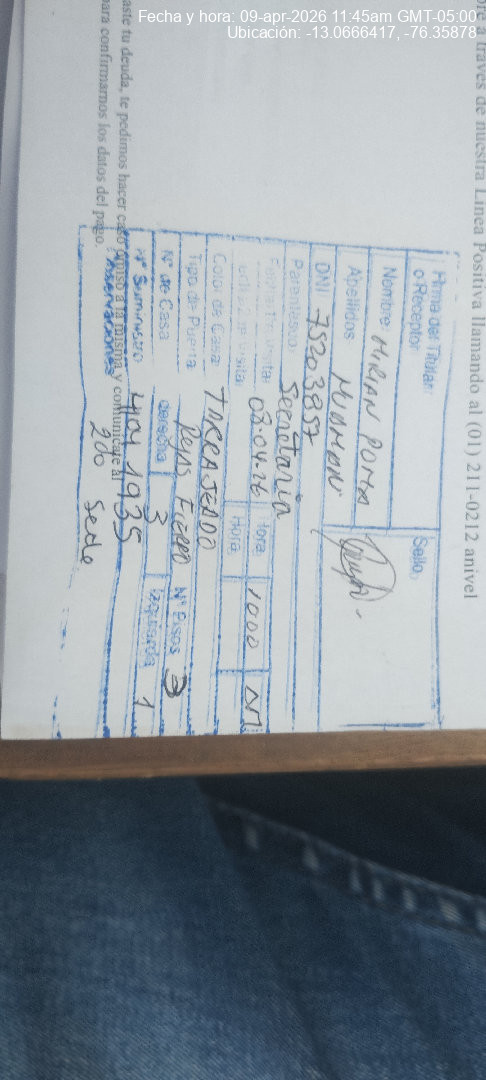 Fecha y hora: 09-apr-2026 11:45am GMT-05:00
Ubicación: -13.0666417, -76.35878
a través de nuestra Línea Positiva llamando al (01) 211-0212 anivel
Firma del Titular
o Receptor
Sello
Nombre: MIRIAN POMA
Apellidos HUAMAN
DNI 75203857
Parentesco: Secretaria
visita: 08-04-26 Hora 1000 AM
visita Hora
Color de Casa: TARRAJEADO
Tipo de Puerta Rejas FIERRO Nº Pisos 3
Nº de Casa Derecha 3 Izquierda 1
Nº Suministro 4041935
Observaciones 2do Sede
tu deuda, te pedimos hacer caso omiso a la misma y comunicate al
para confirmarnos los datos del pago.